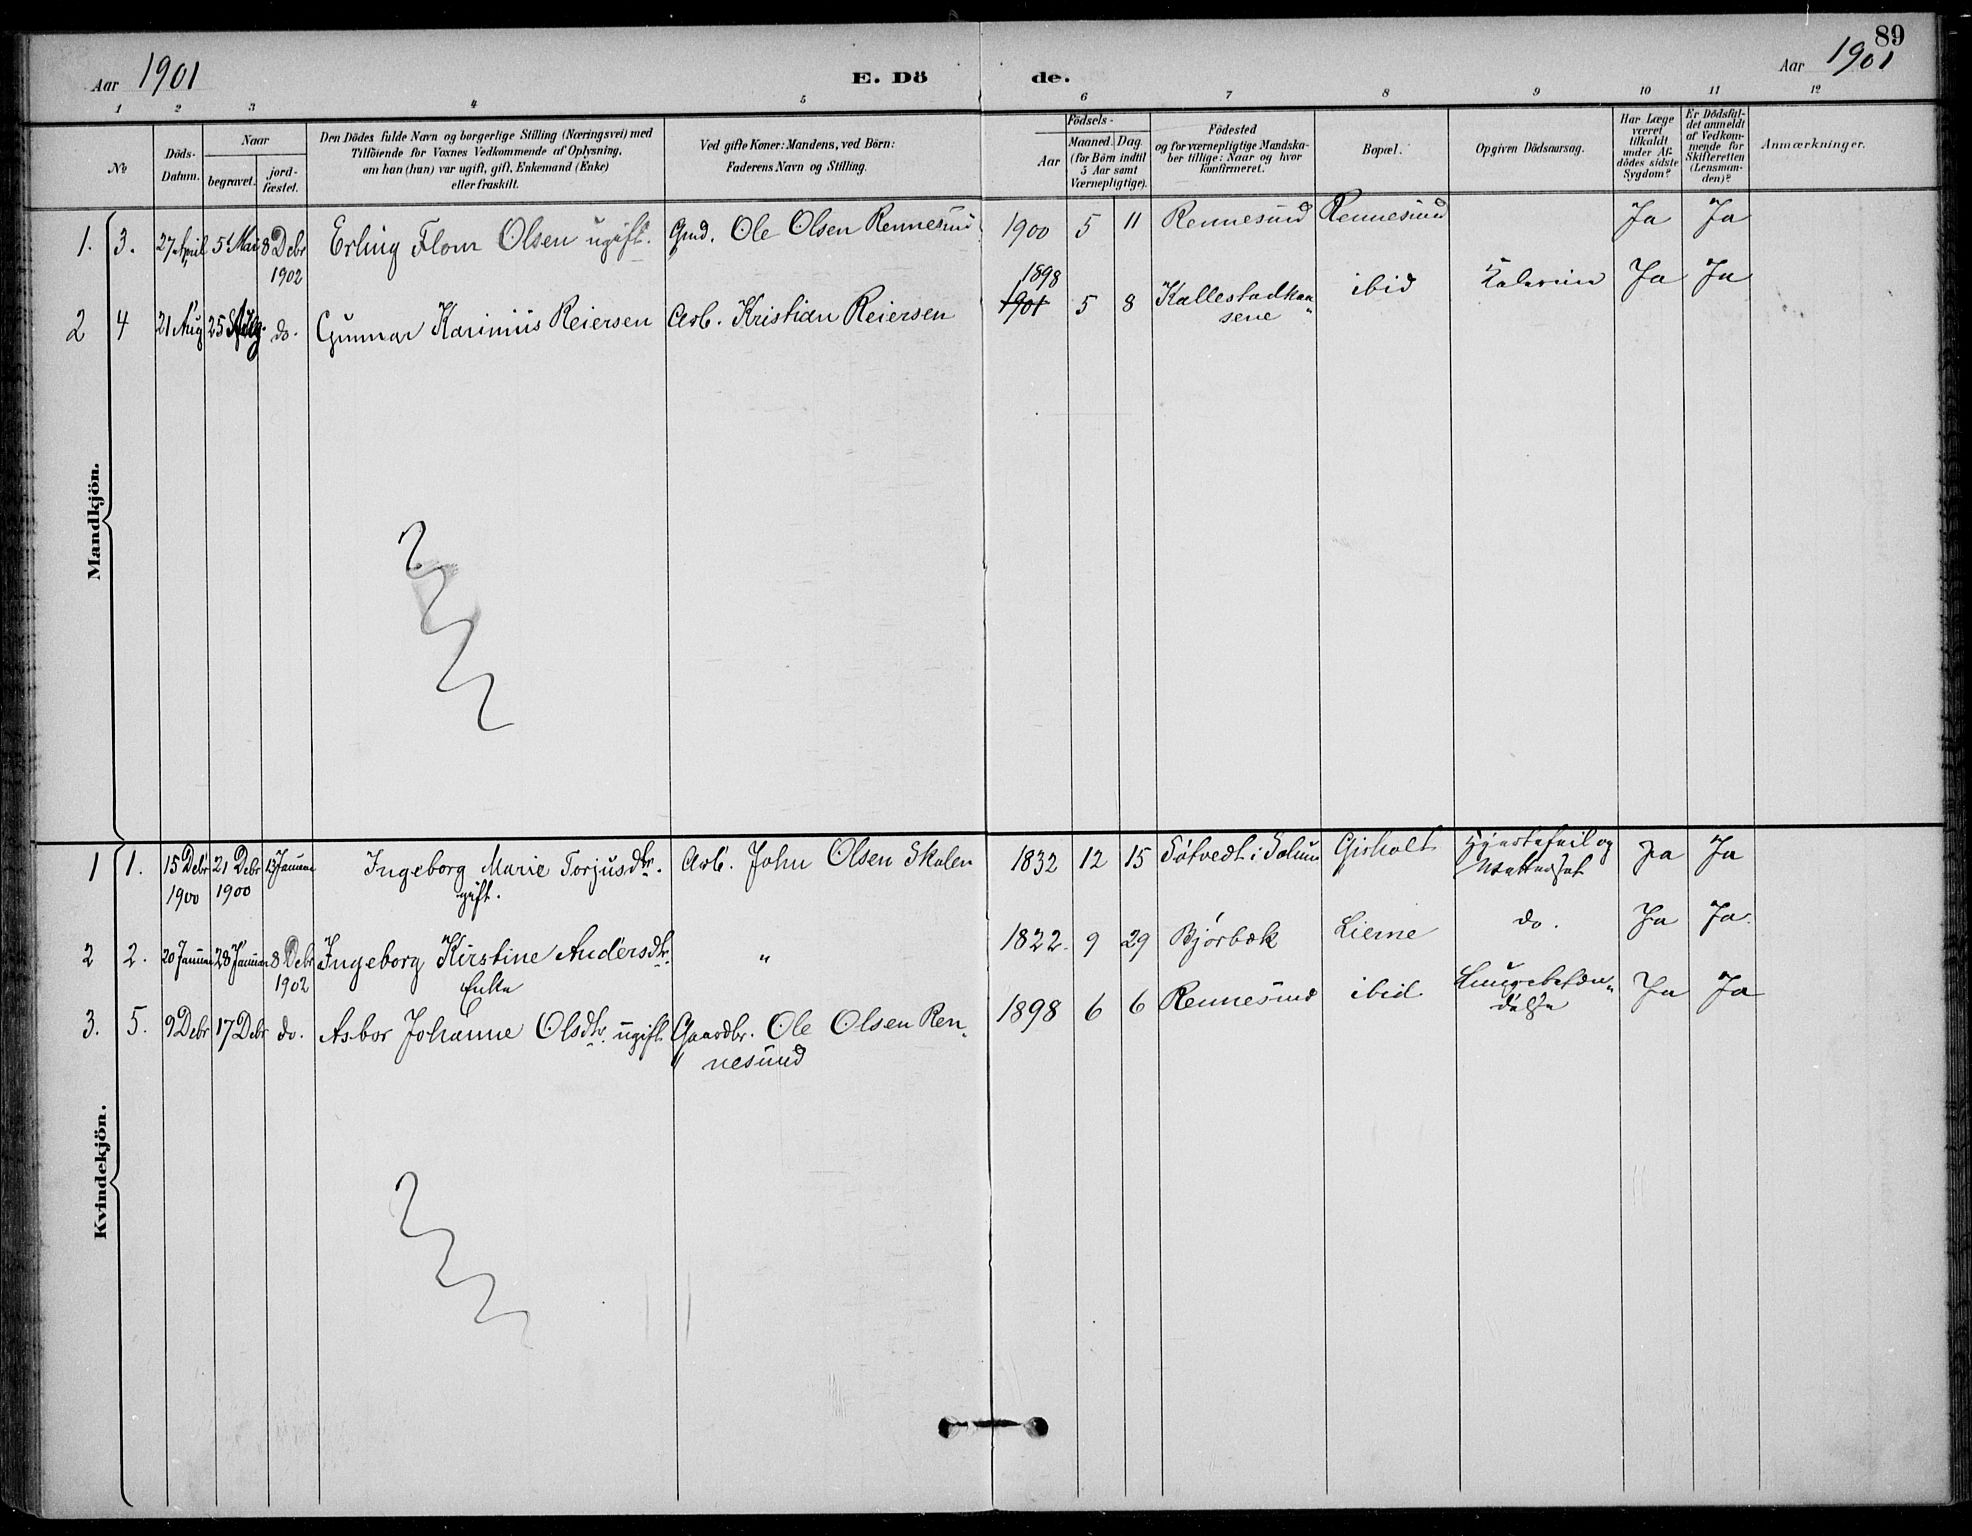 89
Aar 1901
E. Dö de.
Aar 1901
1 2 3 4 5 6 7 8 9 10 11 12
No
Döds-
Datum.
Naar
begravet.
jord-
fæstet.
Den Dödes fulde Navn og borgerlige Stilling (Næringsvei) med
Tilföiende for Voxnes Vedkommende af Oplysning,
om han (hun) var ugift, gift, Enkemand (Enke)
eller fraskilt.
Ved gifte Koner: Mandens, ved Börn:
Faderens Navn og Stilling.
Födsels-
Aar
Maaned. Dag.
(for Börn indtil
5 Aar samt
Værnepligtige).
Födested
og for værnepligtige Mandska-
ber tillige: Naar og hvor
konfirmeret.
Bopæl.
Opgiven Dödsaarsag.
Har Læge
været
tilkaldt
under Af-
dödes sidste
Sygdom?
Er Dödsfal-
det anmeldt
af Vedkom-
mende for
Skifteretten
(Lensman-
den)?
Anmærkninger.
Mandkjön.
1. 3. 27 April 5 Mai 8 Debr Erling Flom Olsen ugift. Gmd. Ole Olsen Rennesund 1900 5 11 Rennesund Rennesund Ja Ja
1902
1898
2 4 21 Aug 25 Aug. do. Gunnar Karinius Reiersen Arb. Kristian Reiersen 1901 5 8 Kallestadkaa„ ibid Kolerine Ja Ja
sene
Kvindekjön.
1 1. 15 Debr 21 Debr 13 Januar Ingeborg Marie Torjusdtr. Arb. John Olsen Skolen 1832 12 15 Søtvedt i Solum Gisholt Hjertefeil og Ja Ja
1900 1900 gift. Vattersot
2 2. 20 Januar 28 Januar 8 Debr Ingeborg Kirstine Andersdtr. „ 1822. 9 29 Bjørbæk Lierne do. Ja Ja.
1902 Enke
3. 5. 9 Debr 17 Debr do. Asbor Johanne Olsdtr. ugift Gaardbr. Ole Olsen Ren„ 1898 6 6 Rennesund ibid. Lungebetæn„ Ja Ja
„ nesund delse